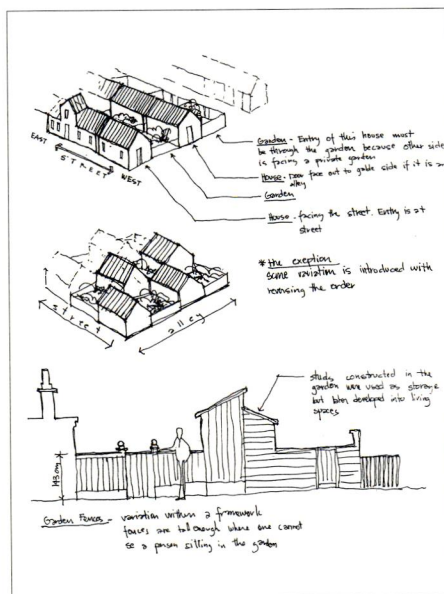 EAST
STREET
WEST
Garden - Entry of this house must
be through the garden because other side
is facing a private garden
House - Door face out to gable side if it is a
alley
Garden
House - facing the street. Entry is at
street
* the exeption
some variation is introduced with
reversing the order
street
alley
study constructed in the
garden were used as storage
but been developed into living
spaces
143cm
Garden Fences - variation within a framework
fences are tall enough where one cannot
se a person sitting in the garden